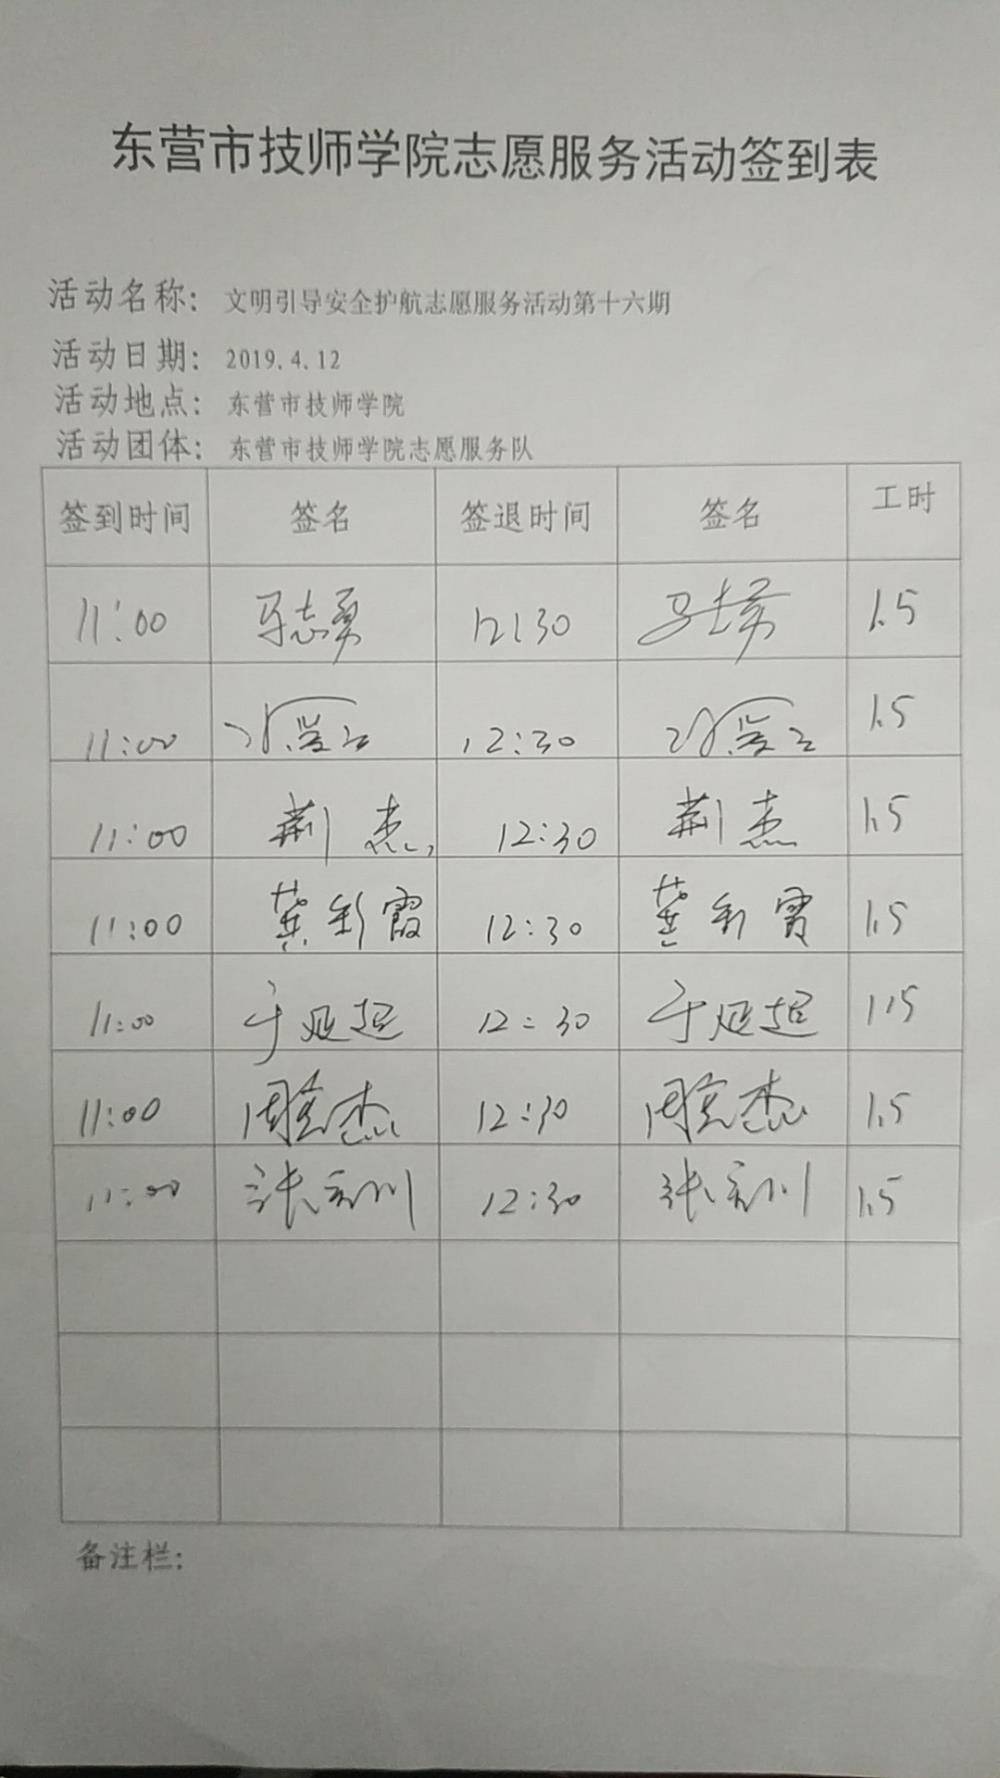 东营市技师学院志愿服务活动签到表
活动名称: 文明引导安全护航志愿服务活动第十六期
活动日期: 2019.4.12
活动地点: 东营市技师学院
活动团体: 东营市技师学院志愿服务队
签到时间 签名 签退时间 签名 工时
11:00 马志勇 12:30 马志勇 1.5
11:00 12:30 1.5
11:00 荆杰 12:30 荆杰 1.5
11:00 龚彩霞 12:30 龚彩霞 1.5
11:00 于延超 12:30 于延超 1.5
11:00 周宪杰 12:30 周宪杰 1.5
11:00 张 川 12:30 张 川 1.5
备注栏: